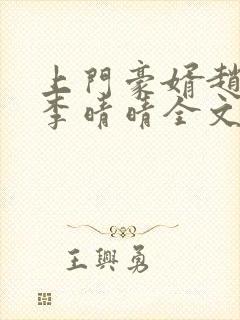 上門豪婿趙
李晴晴全文
王興勇